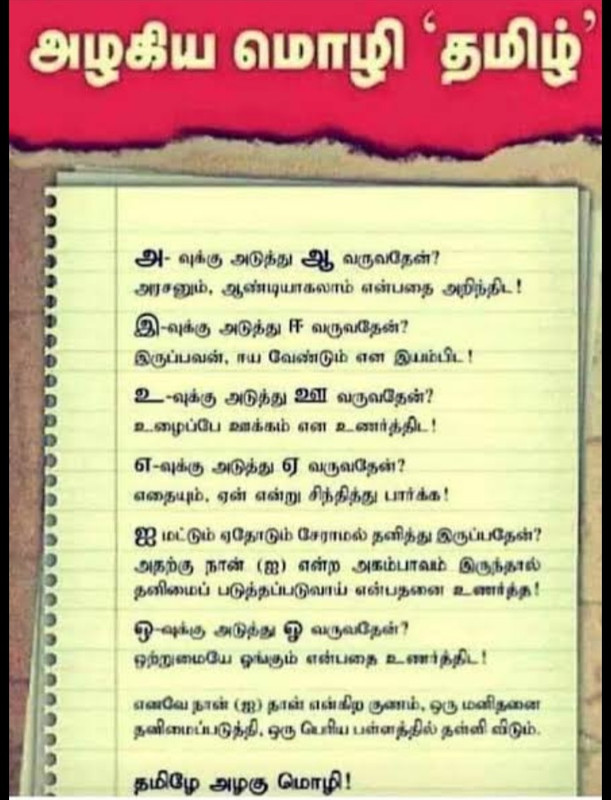 அழகிய மொழி ‘தமிழ்’
அ- வுக்கு அடுத்து ஆ வருவதேன்?
அரசனும், ஆண்டியாகலாம் என்பதை அறிந்திட!
இ-வுக்கு அடுத்து ஈ வருவதேன்?
இருப்பவன், ஈய வேண்டும் என இயம்பிட!
உ-வுக்கு அடுத்து ஊ வருவதேன்?
உழைப்பே ஊக்கம் என உணர்த்திட!
எ-வுக்கு அடுத்து ஏ வருவதேன்?
எதையும், ஏன் என்று சிந்தித்து பார்க்க!
ஐ மட்டும் ஏதோடும் சேராமல் தனித்து இருப்பதேன்?
அதற்கு நான் (ஐ) என்ற அகம்பாவம் இருந்தால்
தனிமைப் படுத்தப்படுவாய் என்பதனை உணர்த்த!
ஒ-வுக்கு அடுத்து ஓ வருவதேன்?
ஒற்றுமையே ஓங்கும் என்பதை உணர்த்திட!
எனவே நான் (ஐ) தான் என்கிற குணம், ஒரு மனிதனை
தனிமைப்படுத்தி, ஒரு பெரிய பள்ளத்தில் தள்ளி விடும்.
தமிழே அழகு மொழி!